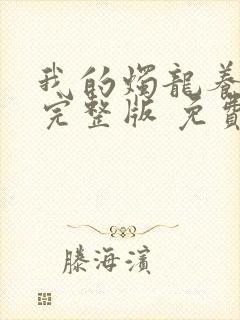 我的燭龍養
完整版 免費
滕海濱